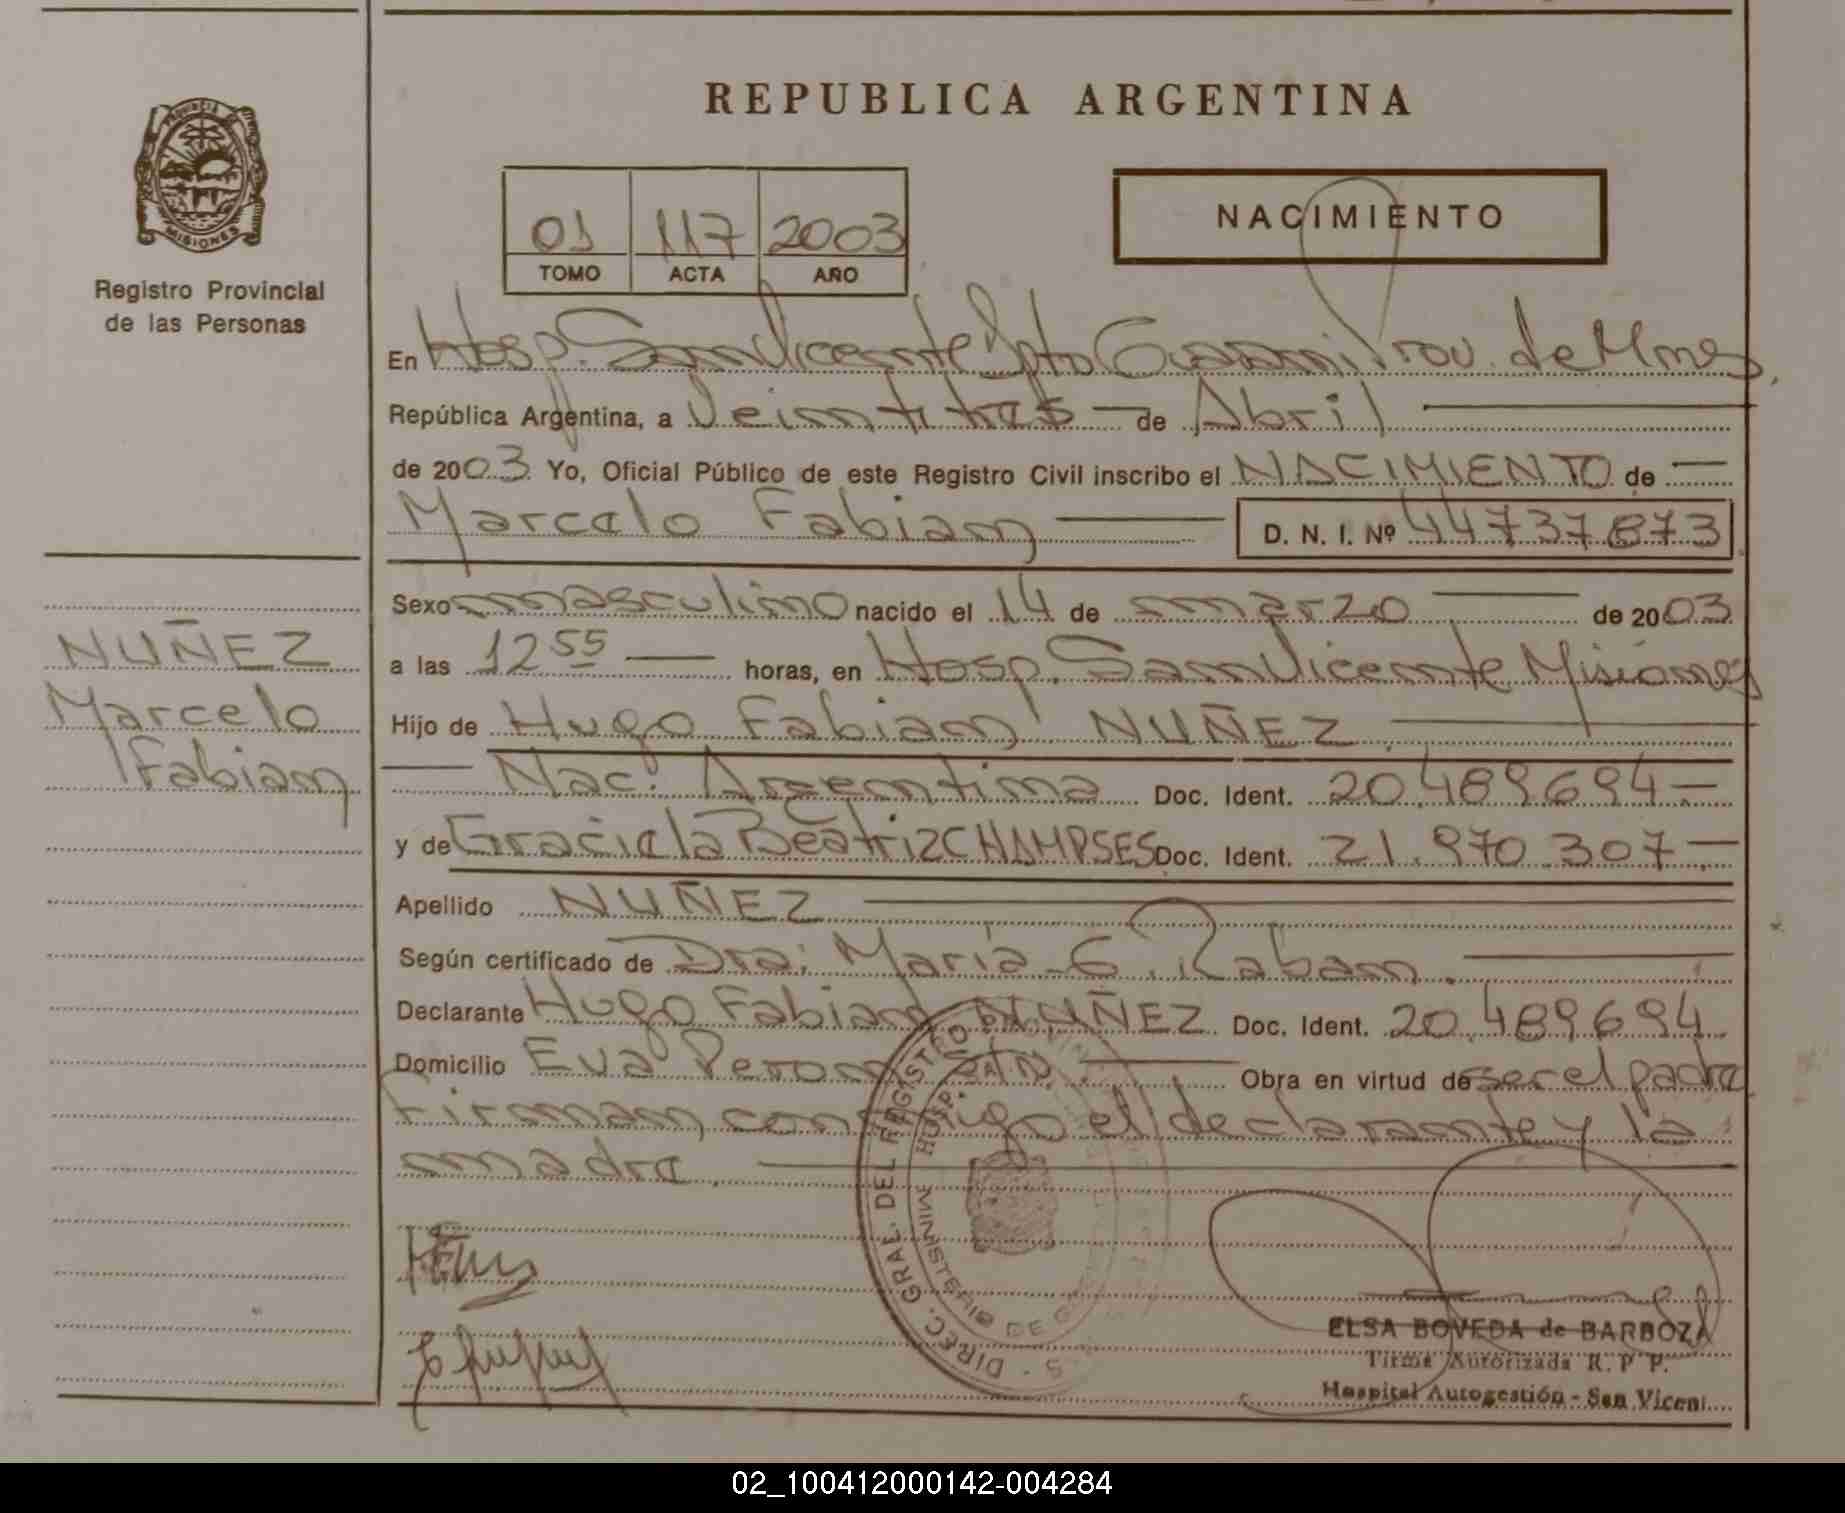 REPUBLICA ARGENTINA
PROVINCIA DE
MISIONES
Registro Provincial
de las Personas
01 117 2003
TOMO ACTA AÑO
NACIMIENTO
En Hosp. San Vicente Dpto Guaraní Prov. de Mnes,
República Argentina, a Veintitres de Abril
de 2003 Yo, Oficial Público de este Registro Civil inscribo el NACIMIENTO de
Marcelo Fabian D. N. I. Nº 44737873
Sexo masculino nacido el 14 de marzo de 2003
a las 12 55 horas, en Hosp. San Vicente Misiones
Hijo de Hugo Fabian NUÑEZ
Nac. Argentina Doc. Ident. 20.489694
y de Graciela Beatriz CHAMPSES Doc. Ident. 21.970.307
Apellido NUÑEZ
Según certificado de Dra. Maria G. Raban.
Declarante Hugo Fabian NUÑEZ Doc. Ident. 20.489694
Domicilio Eva Peron S/N. Obra en virtud de ser el padre
Firman conmigo el declarante y la
madre.
NUÑEZ
Marcelo
Fabian
DIREC. GRAL. DEL REGISTRO
HOSP.
MINISTERIO DE
ELSA BOVEDA de BARBOZA
Firma Autorizada R. P. P.
Hospital Autogestión - San Vicent
02_100412000142-004284